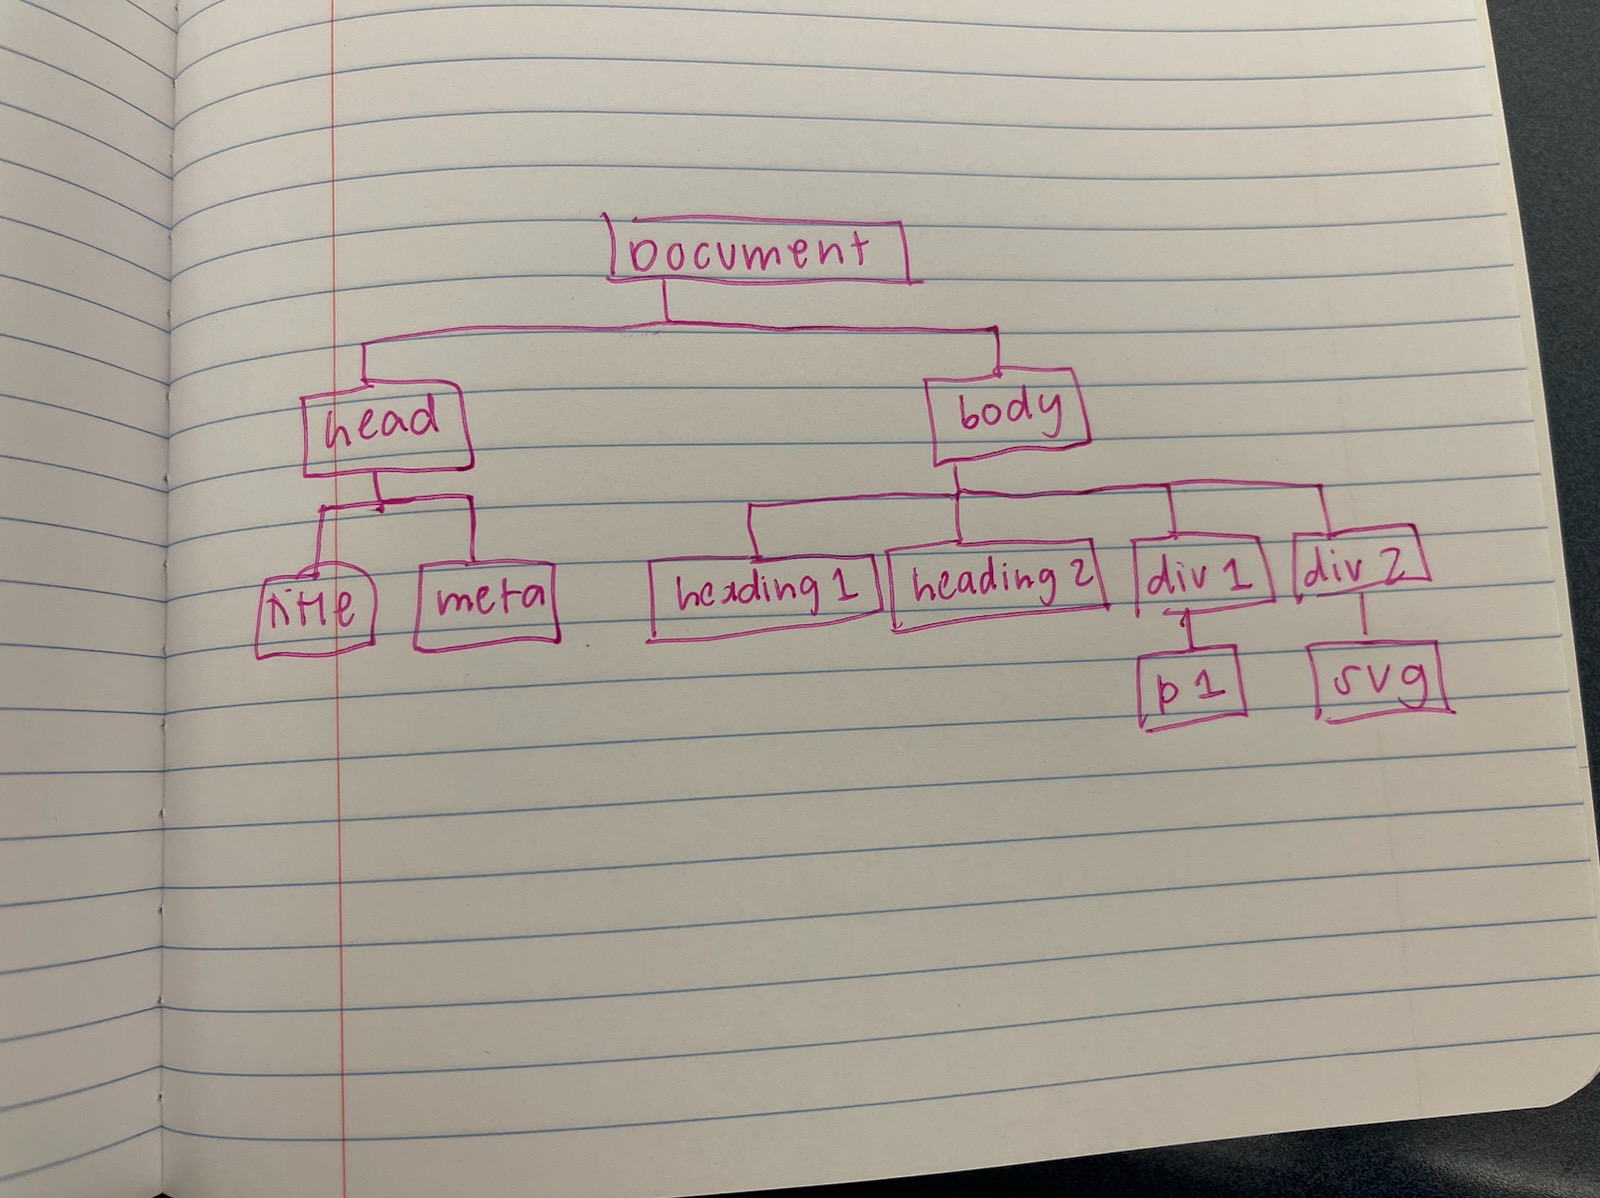 Document
head
body
title
meta
heading 1
heading 2
div 1
div 2
p 1
svg